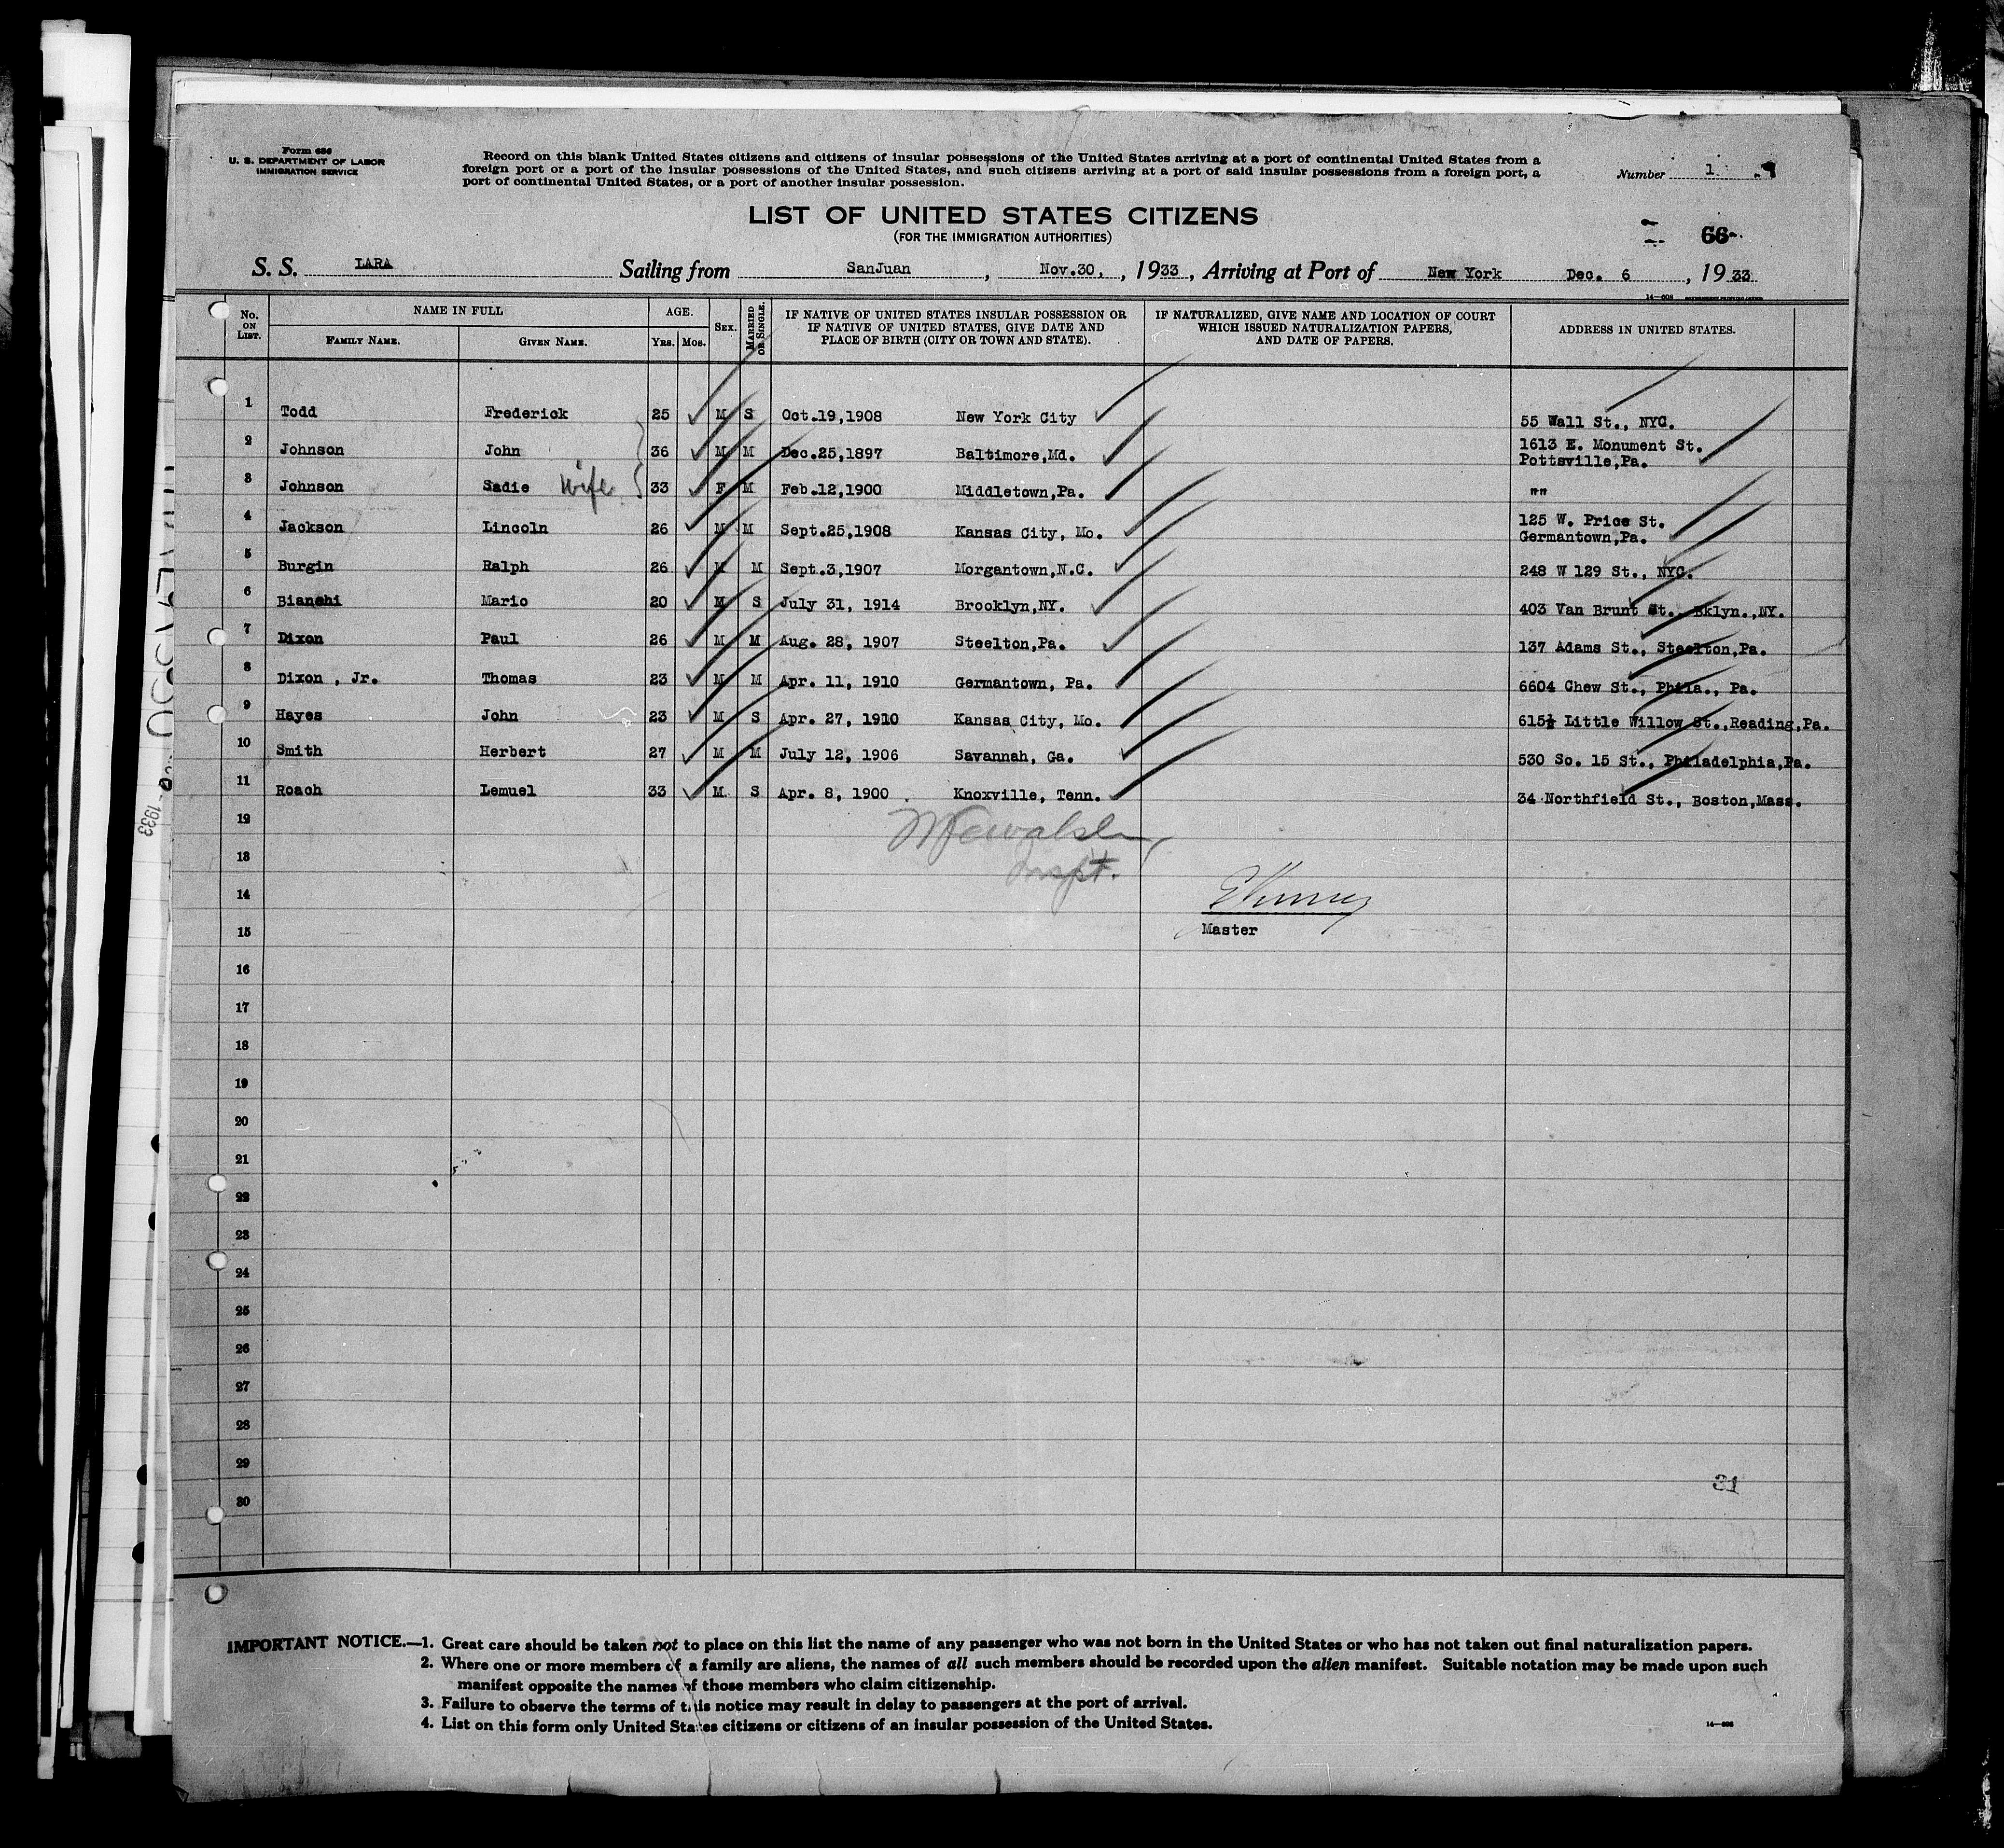 Form 686
U. S. DEPARTMENT OF LABOR
IMMIGRATION SERVICE
Record on this blank United States citizens and citizens of insular possessions of the United States arriving at a port of continental United States from a
foreign port or a port of the insular possessions of the United States, and such citizens arriving at a port of said insular possessions from a foreign port, a
port of continental United States, or a port of another insular possession.
Number 1
LIST OF UNITED STATES CITIZENS
(FOR THE IMMIGRATION AUTHORITIES)
66
S. S. LARA Sailing from SanJuan, Nov.30, , 1933, Arriving at Port of New York Dec. 6, 1933
14—608 GOVERNMENT PRINTING OFFICE
No. ON LIST. NAME IN FULL AGE. SEX. MARRIED OR SINGLE. IF NATIVE OF UNITED STATES INSULAR POSSESSION OR IF NATIVE OF UNITED STATES, GIVE DATE AND PLACE OF BIRTH (CITY OR TOWN AND STATE). IF NATURALIZED, GIVE NAME AND LOCATION OF COURT WHICH ISSUED NATURALIZATION PAPERS, AND DATE OF PAPERS. ADDRESS IN UNITED STATES.
FAMILY NAME. GIVEN NAME. YRS. MOS.
1 Todd Frederick 25 M S Oct.19,1908 New York City 55 Wall St., NYC.
2 Johnson John 36 M M Dec.25,1897 Baltimore,Md. 1613 E. Monument St.
Pottsville,Pa.
3 Johnson Sadie wife 33 F M Feb.12,1900 Middletown,Pa. ""
4 Jackson Lincoln 26 M M Sept.25,1908 Kansas City, Mo. 125 W. Price St.
Germantown,Pa.
5 Burgin Ralph 26 M M Sept.3,1907 Morgantown,N.C. 248 W 129 St., NYC.
6 Bianchi Mario 20 M S July 31, 1914 Brooklyn,NY. 403 Van Brunt St., Bklyn.,NY.
7 Dixon Paul 26 M M Aug. 28, 1907 Steelton,Pa. 137 Adams St., Steelton,Pa.
8 Dixon , Jr. Thomas 23 M M Apr. 11, 1910 Germantown, Pa. 6604 Chew St., Phila., Pa.
9 Hayes John 23 M S Apr. 27, 1910 Kansas City, Mo. 615½ Little Willow St.,Reading,Pa.
10 Smith Herbert 27 M M July 12, 1906 Savannah, Ga. 530 So. 15 St., Philadelphia,Pa.
11 Roach Lemuel 33 M S Apr. 8, 1900 Knoxville, Tenn. 34 Northfield St., Boston,Mass.
12
13 Inspt.
14
15 Master
16
17
18
19
20
21
22
23
24
25
26
27
28
29
31
30
IMPORTANT NOTICE.—1. Great care should be taken not to place on this list the name of any passenger who was not born in the United States or who has not taken out final naturalization papers.
2. Where one or more members of a family are aliens, the names of all such members should be recorded upon the alien manifest. Suitable notation may be made upon such
manifest opposite the names of those members who claim citizenship.
3. Failure to observe the terms of this notice may result in delay to passengers at the port of arrival.
4. List on this form only United States citizens or citizens of an insular possession of the United States.
14—608